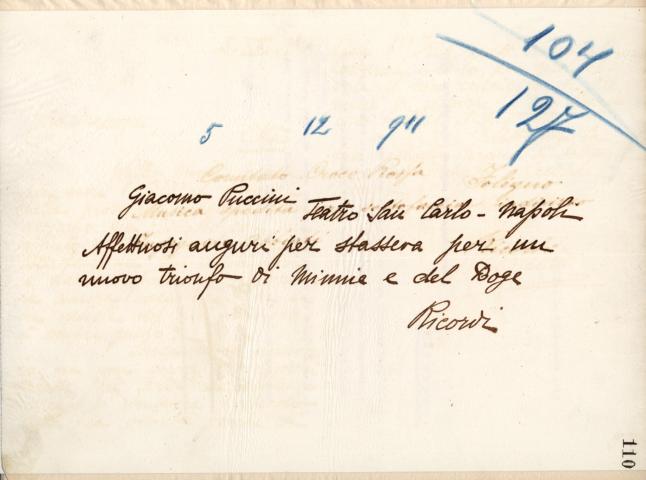 104
127
5 12 911
Giacomo Puccini Teatro San Carlo - Napoli
Affettuosi auguri per stassera per un
nuovo trionfo di Minnie e del Doge
Ricordi
110